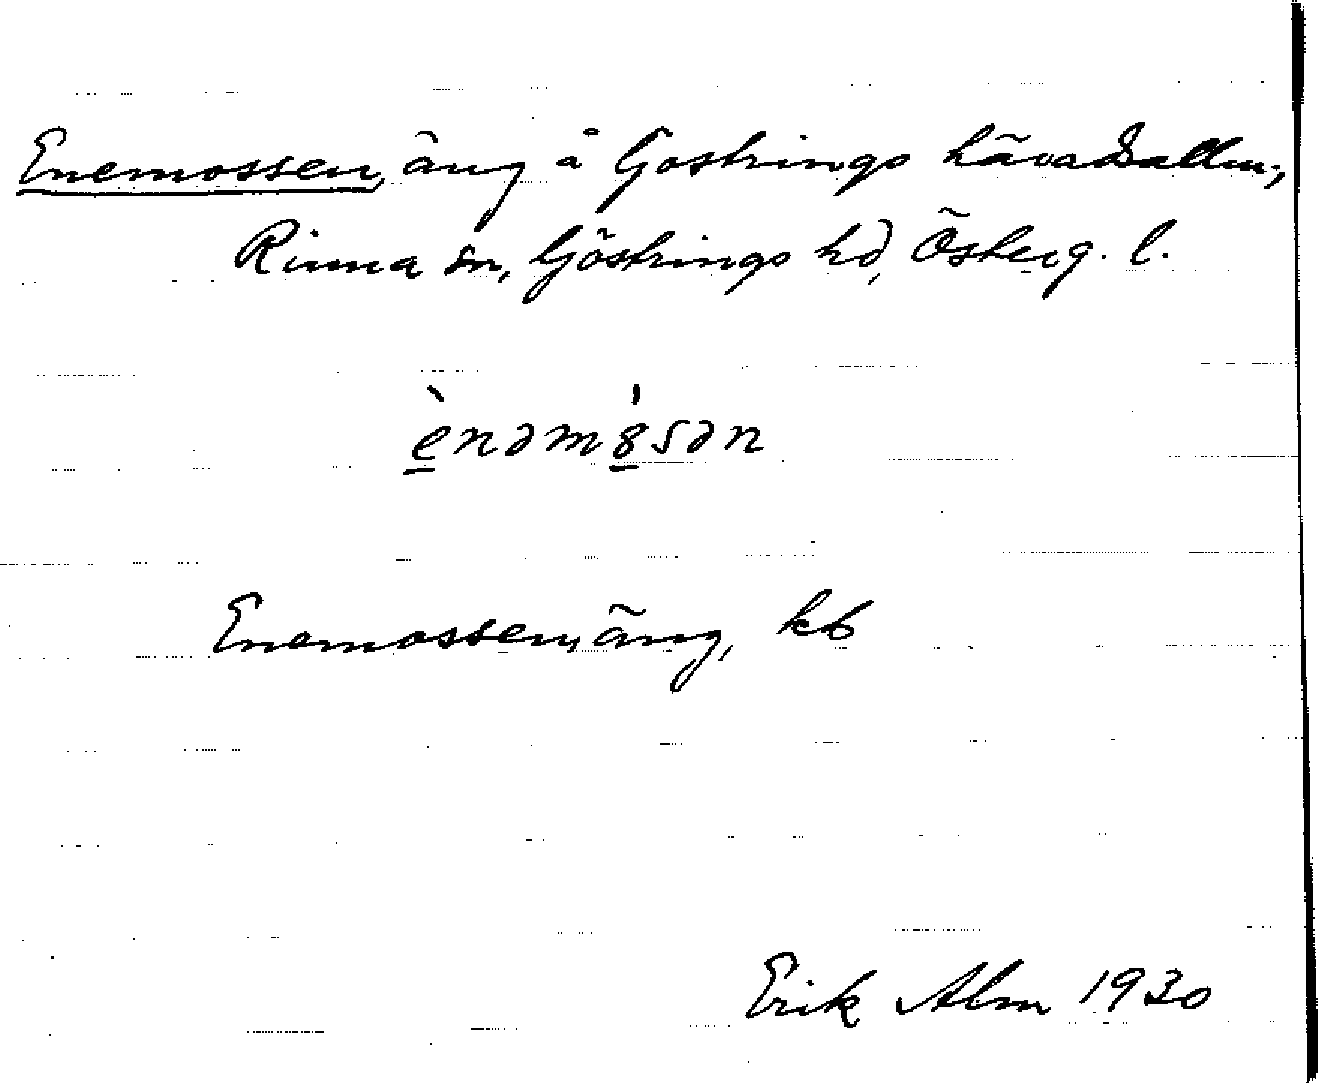 Enemossen, äng å Göstrings häradsallm.,
Rinna sn, Göstrings hd, Österg. l.
ènəmȣ́sən
Enemossen, äng, kb
Erik Alm 1930